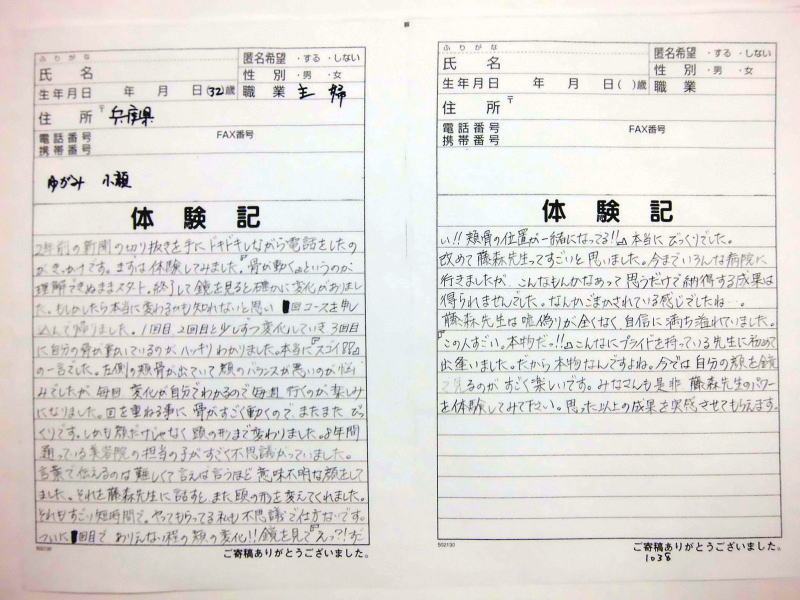 ふりがな
氏名
匿名希望 ・する ・しない
性別 ・男 ・女
生年月日 年 月 日(32)歳
職業 主婦
住所 〒 兵庫県
電話番号 FAX番号
携帯番号
ゆがみ 小顔
体験記
2年前の新聞の切り抜きを手にドキドキしながら電話をしたの
がきっかけです。まずは体験してみました。『骨が動く』というのが
理解できぬままスタート。終了して鏡を見ると確かに変化がありまし
た。もしかしたら本当に変わるかも知れないと思い 回コースを申し
込んで帰りました。1回目2回目と少しずつ変化していき3回目
に自分の骨が動いているのがハッキリわかりました。本当に『スゴイ!!』
の一言でした。左側の頬骨が出ていて顔のバランスが悪いのが悩
みでしたが毎回変化が自分でわかるので毎週行くのが楽しみ
になりました。回を重ねる事に骨がすごく動くので、またまたびっ
くりです。しかも顔だけじゃなく頭の形まで変わりました。8年間
通っている美容院の担当の子がすごく不思議がっていました。
言葉で伝えるのは難しくて言えば言うほど意味不明な顔をして
ました。それを藤森先生に話すと、また頭の形を変えてくれました。
それもすごい短時間で。やってもらってる私も不思議で仕方ないです。
ついに 回目でありえない程の頬の変化!!鏡を見て『えっ?!すご
502130
ご寄稿ありがとうございました。
ふりがな
氏名
匿名希望 ・する ・しない
性別 ・男 ・女
生年月日 年 月 日( )歳
職業
住所 〒
電話番号 FAX番号
携帯番号
体験記
い!!頬骨の位置が一緒になってる!!』本当にびっくりでした。
改めて藤森先生ってすごいと思いました。今までいろんな病院に
行きましたが、こんなもんかなあって思うだけで納得する成果は
得られませんでした。なんかごまかされている感じでしたね…。
藤森先生は嘘偽りが全くなく自信に満ち溢れていました。
『この人すごい。本物だっ!!』こんなにプライドを持っている先生に初めて
出逢いました。だから本物なんですよね。今では自分の顔を鏡
で見るのがすごく楽しいです。みなさんも是非藤森先生のパワー
を体験してみて下さい。思った以上の成果を実感させてもらえます。
502130
ご寄稿ありがとうございました。
1038